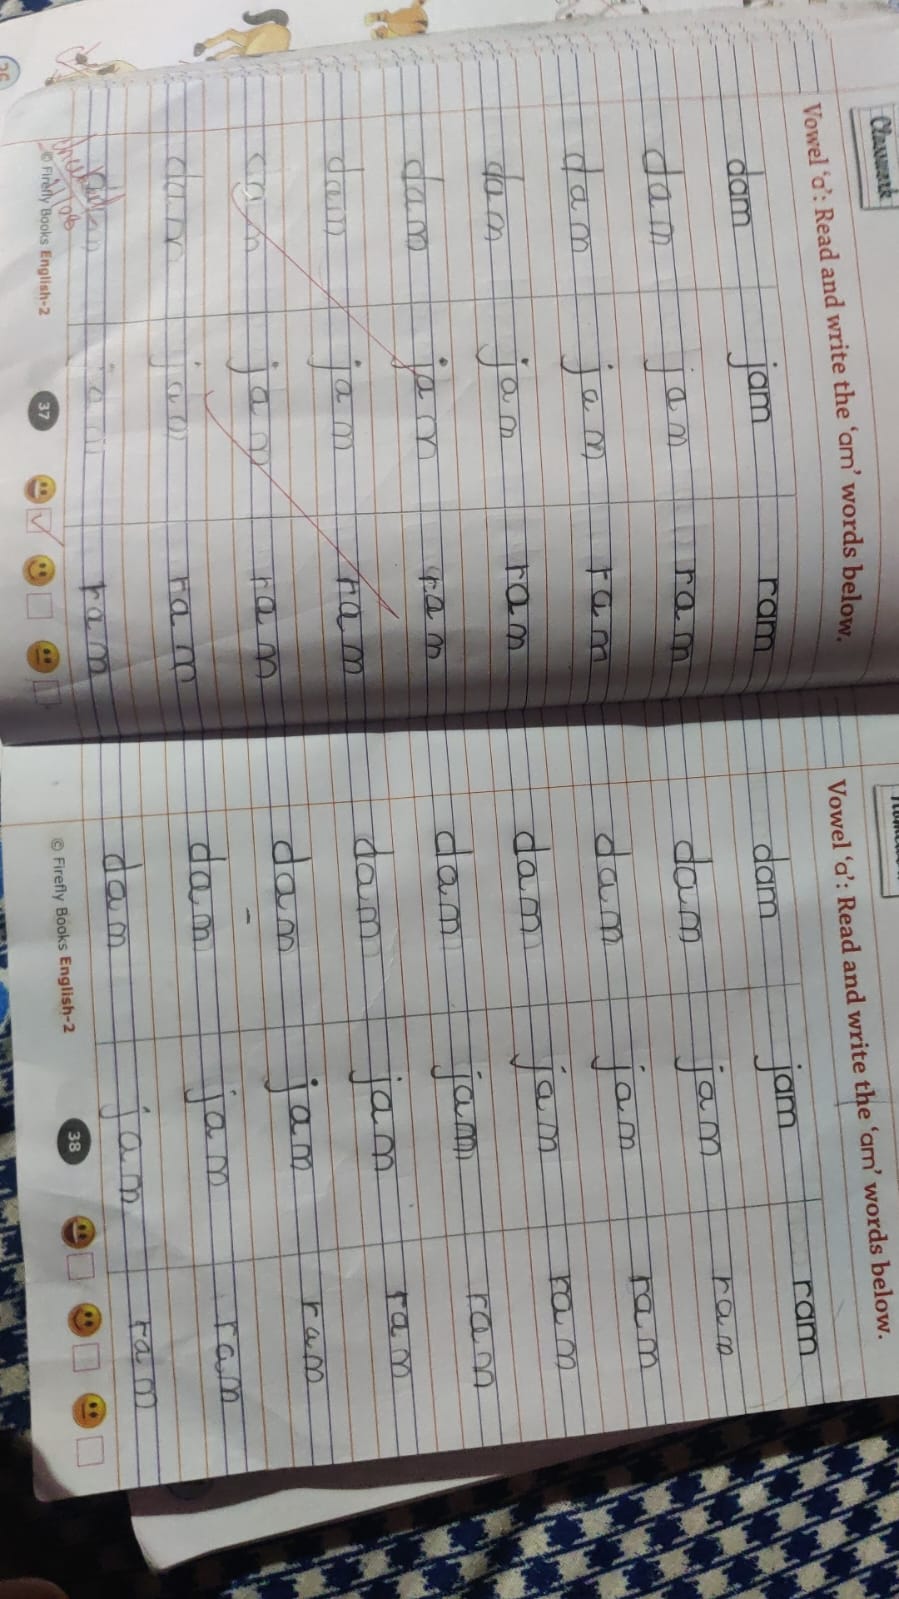 Classwork
Vowel 'a': Read and write the 'am' words below.
dam jam ram
dam jam ram
dam jam ram
dam jam ram
dam jam ram
dam jam ram
jam ram
dam jam ram
jam ram
© Firefly Books English-2 37
Vowel 'a': Read and write the 'am' words below.
dam jam ram
dam jam ram
dam jam ram
dam jam ram
dam jam ram
dam jam ram
dam jam ram
dam jam ram
dam jam ram
© Firefly Books English-2 38